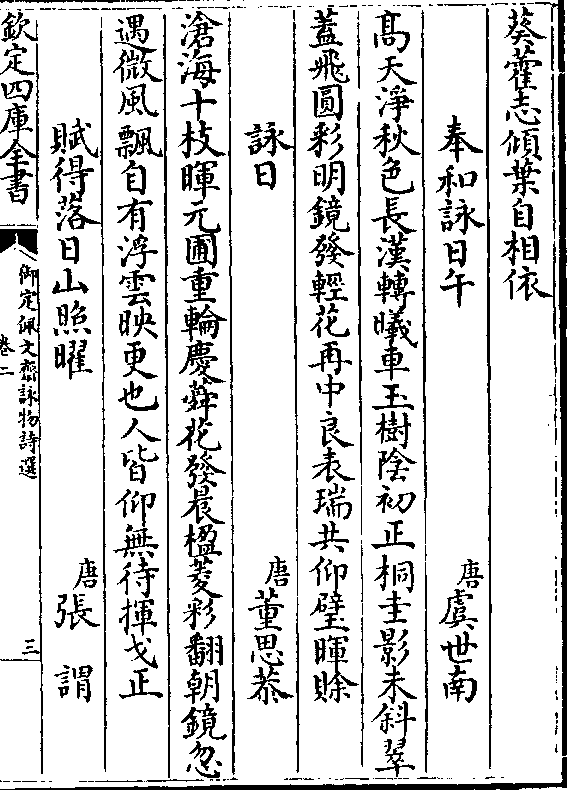 葵藿志傾葉自相依
奉和詠日午　唐虞世南
髙天淨秋色長漢轉曦車玉樹陰初正桐圭影未斜翠
蓋飛圓彩明鏡發輕花再中良表瑞共仰璧暉賖
詠日　唐董思恭
滄海十枝暉元圃重輪慶蕣花發晨楹菱彩翻朝鏡忽
遇微風飄自有浮雲映更也人皆仰無待揮戈正
賦得落日山照曜　唐張謂
欽定四庫全書
御定佩文齋詠物詩選
卷二
三